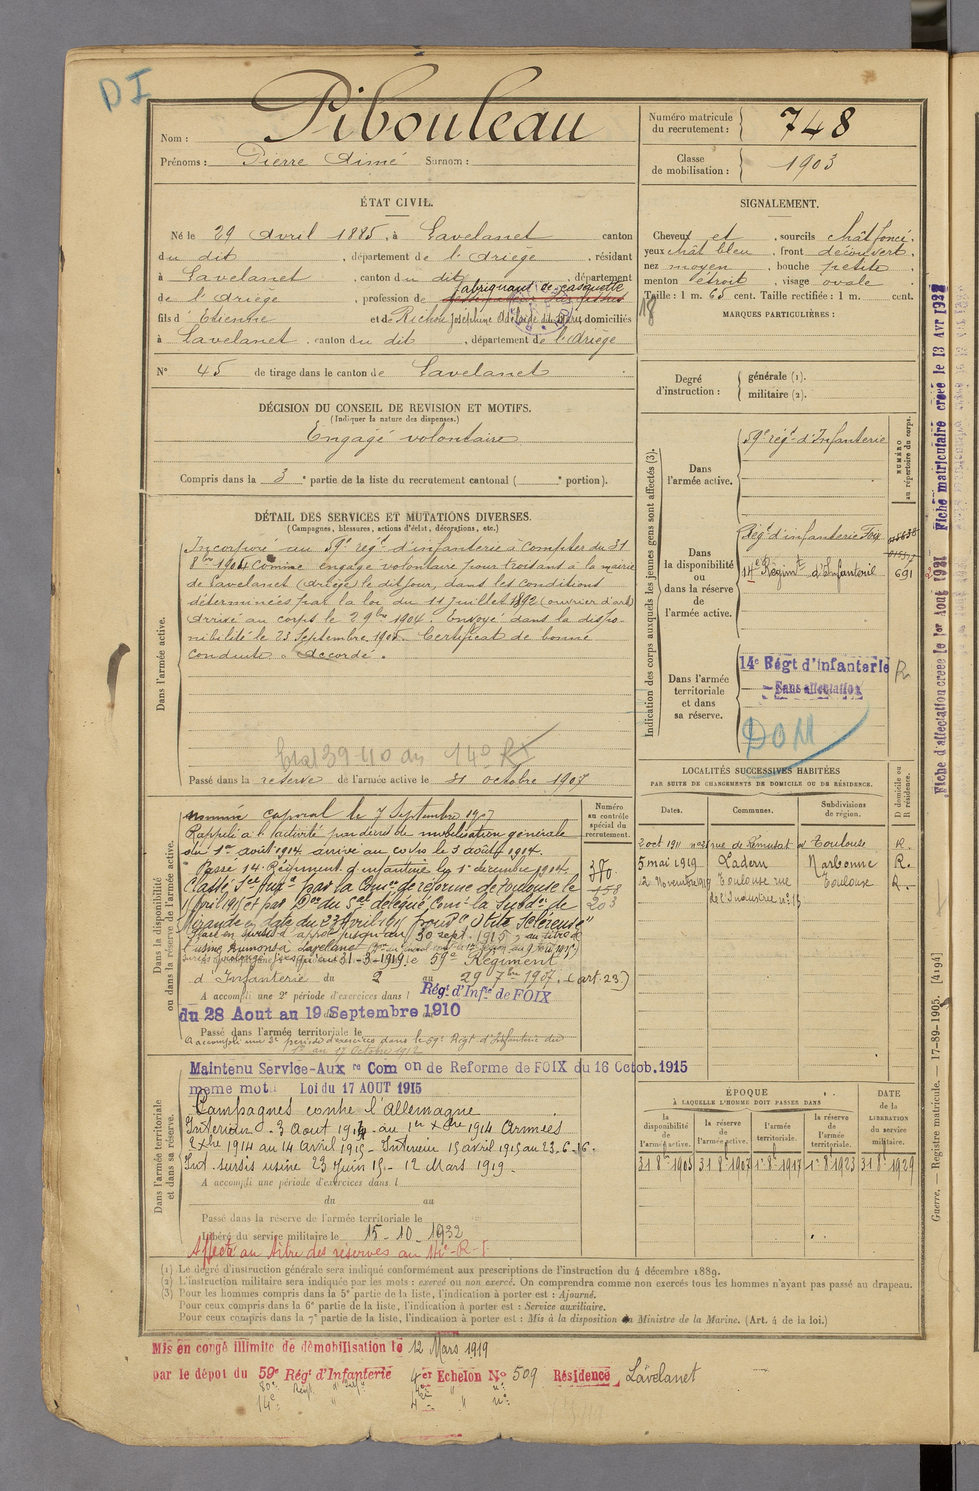 DI
Nom : Pibouleau
Prénoms : Pierre Aimé Surnom :
Numéro matricule du recrutement : 748
Classe de mobilisation : 1903
ÉTAT CIVIL.
Né le 29 Avril 1885, à Lavelanet canton
du dit, département de l'Ariège, résidant
à Lavelanet, canton du dit, département
de l'Ariège, profession de fabriquant de casquette
fils d'Etienne et de Richou Joséphine Adélaïde domiciliés
à Lavelanet, canton du dit, département de l'Ariège
N° 45 de tirage dans le canton de Lavelanet
SIGNALEMENT.
Cheveux et , sourcils chât foncé,
yeux chât bleu, front découvert,
nez moyen, bouche petite,
menton étroit, visage ovale.
Taille : 1 m. 65 cent. Taille rectifiée : 1 m. cent.
MARQUES PARTICULIÈRES :
18
Degré d'instruction : générale (1).
militaire (2).
DÉCISION DU CONSEIL DE REVISION ET MOTIFS.
(Indiquer la nature des dispenses.)
Engagé volontaire
Compris dans la 3e partie de la liste du recrutement cantonal ( e portion).
DÉTAIL DES SERVICES ET MUTATIONS DIVERSES.
(Campagnes, blessures, actions d'éclat, décorations, etc.)
Dans l'armée active.
Incorporé au 59e régt d'infanterie à compter du 31
8bre 1904 Comme engagé volontaire pour trois ans à la mairie
de Lavelanet (Ariège) le dit jour, dans les conditions
déterminées par la loi du 11 Juillet 1892 (ouvrier d'art)
Arrivé au corps le 2 9bre 1904. Envoyé dans la dispo-
nibilité le 23 Septembre 1905. Certificat de bonne
conduite "Accordé".
Etat 39-40 du 14e R
Passé dans la réserve de l'armée active le 31 octobre 1907
Indication des corps auxquels les jeunes gens sont affectés (3).
NUMÉRO au répertoire du corps.
Dans l'armée active.
59e régt d'Infanterie
Dans la disponibilité ou dans la réserve de l'armée active.
Régt d'infanterie Foix
14e Régimt d'Infanterie 691
Dans l'armée territoriale et dans sa réserve.
14e Régt d'Infanterie R
Sans affectation
DOM
Dans la disponibilité ou dans la réserve de l'armée active.
Numéro au contrôle spécial du recrutement.
370
158
203
nommé caporal le 7 Septembre 1907
Rappelé à l'activité par décret de mobilisation générale
du 1er août 1914 arrivé au corps le 3 août 1914.
Passé 14e Régiment d'infanterie le 1er décembre 1914.
Classé Sce Auxre par la Comon de réforme de Toulouse le
Mirande en date du 23 Avril 1915 pour "Otite scléreuse"
l'usine Dumons à Lavelanet
31-3-1919 le 59e Régiment
d'Infanterie du 2 au 29 7bre 1907. (art. 23)
A accompli une 2e période d'exercices dans l Régt d'Infie de FOIX
du 28 Aout au 19 Septembre 1910
Passé dans l'armée territoriale le
A accompli une 3e période d'exercices dans le 59e Régt d'Infanterie du
1er au 17 Octobre 1912
LOCALITÉS SUCCESSIVES HABITÉES
PAR SUITE DE CHANGEMENTS DE DOMICILE OU DE RÉSIDENCE.
Dates. Communes. Subdivisions de région. D domicile ou R résidence.
2 oct 1911 rue de Toulouse R.
5 mai 1919 Ladern Narbonne R.
12 Novembre 1919 Toulouse rue de l'Industrie n° 15 Toulouse R.
Dans l'armée territoriale et dans sa réserve.
Maintenu Service-Aux. re Com on de Reforme de FOIX du 16 Octob. 1915
meme mot: Loi du 17 AOUT 1915
Campagnes contre l'Allemagne
Intérieur 3 Août 1914 au 1er Xbre 1914 Armées
2 Xbre 1914 au 14 avril 1915 - Intérieur 15 avril 1915 au 23.6.15.
Int. sursis usine 23 Juin 15 - 12 Mars 1919.
A accompli une période d'exercices dans l
du au
Passé dans la réserve de l'armée territoriale le
Libéré du service militaire le 15-10-1932
Affecté au titre des réserves au 14e R.I.
ÉPOQUE
À LAQUELLE L'HOMME DOIT PASSER DANS
la disponibilité de l'armée active. la réserve de l'armée active. l'armée territoriale. la réserve de l'armée territoriale.
DATE de la LIBÉRATION du service militaire.
31 8bre 1905 31 8bre 1907 1er 8bre 1917 1er 8bre 1923 31 8bre 1929
(1) Le degré d'instruction générale sera indiqué conformément aux prescriptions de l'instruction du 4 décembre 1889.
(2) L'instruction militaire sera indiquée par les mots : exercé ou non exercé. On comprendra comme non exercés tous les hommes n'ayant pas passé au drapeau.
(3) Pour les hommes compris dans la 5e partie de la liste, l'indication à porter est : Ajourné.
Pour ceux compris dans la 6e partie de la liste, l'indication à porter est : Service auxiliaire.
Pour ceux compris dans la 7e partie de la liste, l'indication à porter est : Mis à la disposition du Ministre de la Marine. (Art. 4 de la loi.)
Mis en congé illimité de démobilisation le 12 Mars 1919
par le dépot du 59e Rég' d'Infanterie 4er Echelon No 509 Résidence Lavelanet
Guerre. — Registre matricule. — 17-89-1905. [4194]
Fiche d'affectation creee le 1er Aout 1921 Fiche matriculaire creee le 13 Avr 1927